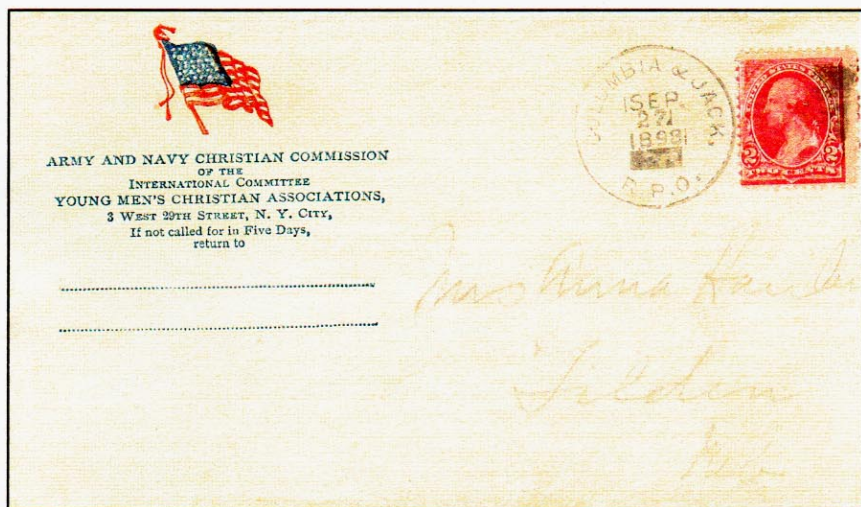 ARMY AND NAVY CHRISTIAN COMMISSION
OF THE
INTERNATIONAL COMMITTEE
YOUNG MEN'S CHRISTIAN ASSOCIATIONS,
3 WEST 29TH STREET, N. Y. CITY,
If not called for in Five Days,
return to
COLUMBIA & JACK.
SEP
27
1898
R. P. O.
2 2
Mrs Anna
Tilden
Neb